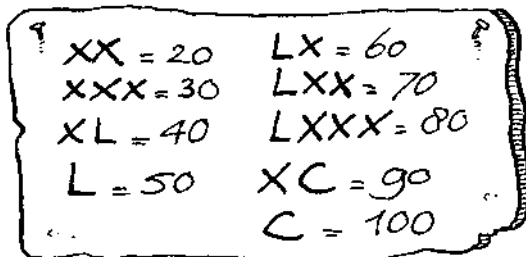 XX = 20
XXX = 30
XL = 40
L = 50
LX = 60
LXX = 70
LXXX = 80
XC = 90
C = 100